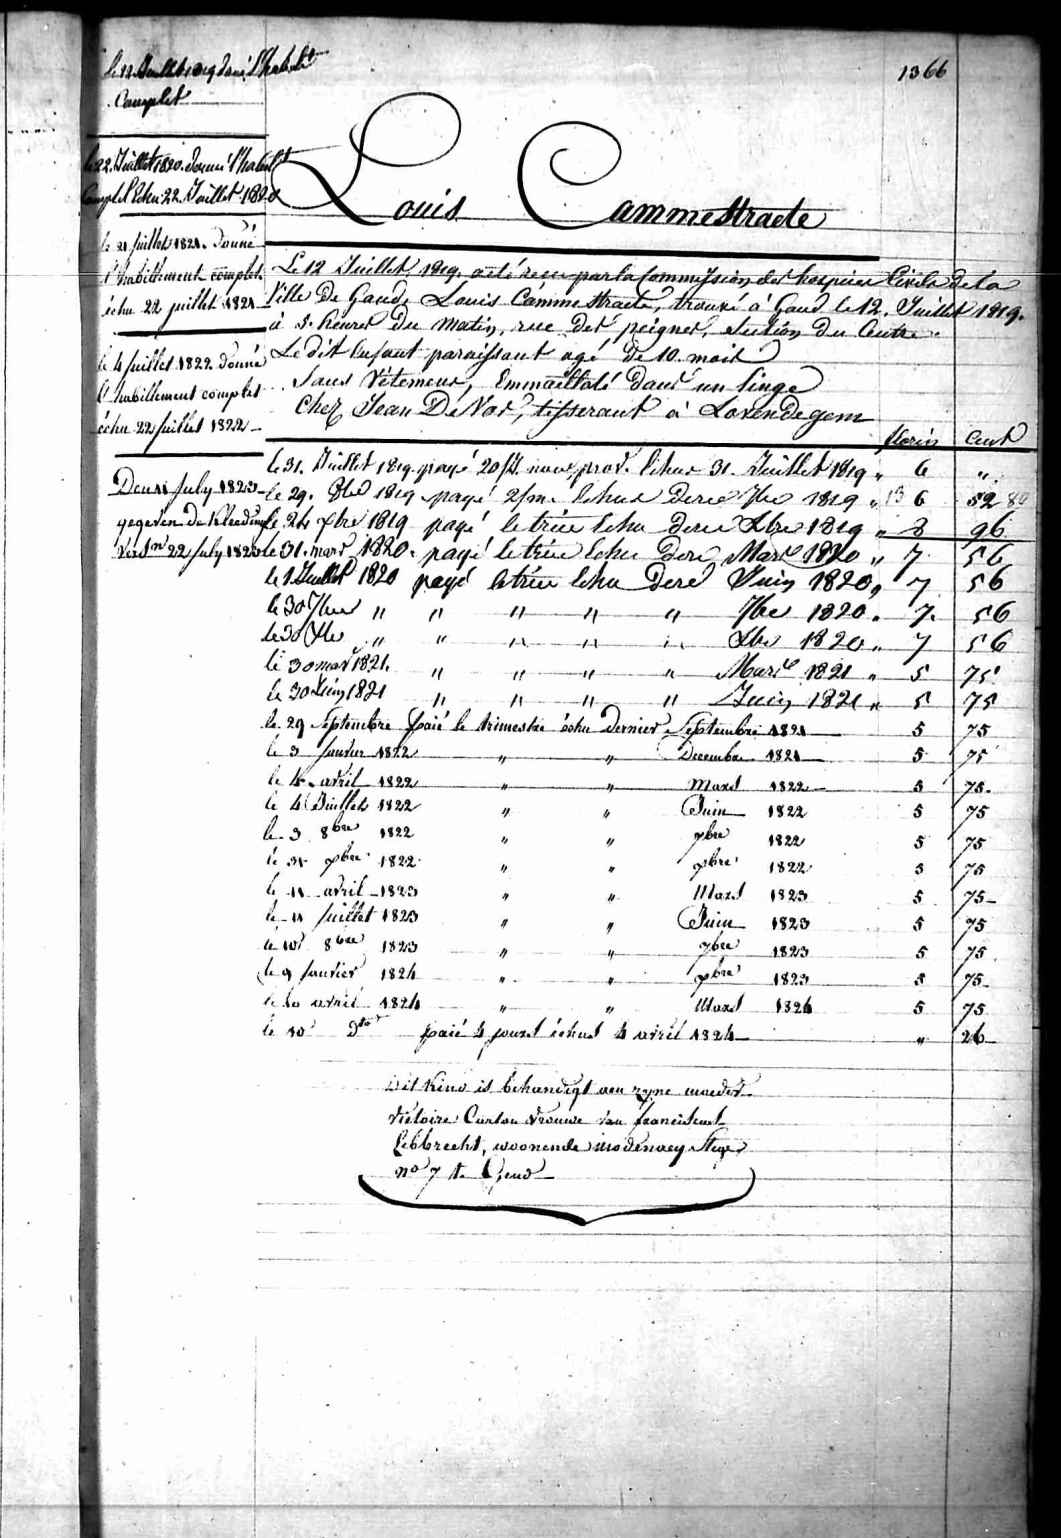 1366
le 12 Juillet 1819 donné l'habilt
Complet
le 22. Juillet 1820. donné l'habilt
Complet Echu 22. Juillet 1820
le 21 juillet 1821. donné
l'habillement complet.
échu 22 juillet 1821
le 4 juillet 1822. donné
l'habillement complet
échu 22 juillet 1822
Den 11 July 1823
gegeven de Kleeding
Verschn 22 July 1823
Louis Cammestraete
Le 12 Juillet 1819. a été reçu par la Commission des hospices Civils de la
Ville De Gand, Louis Cammestraete, trouvé à Gand le 12. Juillet 1819.
à 5. heures Du Matin, rue Des peignes, section Du Centre.
Le Dit Enfant paraissant agé de 10. mois
Sans Vétemens, Emmailloté Dans un linge
Chez Jean De Vos, tisserant à Lovendegem
florins Cents
le 31. Juillet 1819. payé 20 fl. nouv. prov. Echus 31. Juillet 1819 " 6 "
le 29. 1819 payé Echus Dernr 7bre 1819 " 13 6 52
le 24 xbre 1819 payé le trée Echu dernr Xbre 1819 " 8 96
le 31. mars 1820. payé le trée Echu Dernr Mars 1820 " 7 56
le 1 Juillet 1820 payé le trée Echu Dernr Juin 1820 " 7 56
le 30 7bre " " " " " 7bre 1820 " 7 56
le 30 Xbre " " " " " Xbre 1820 " 7 56
le 30 mars 1821. " " " " Mars 1821 " 5 75
le 30 Juin 1821 " " " " Juin 1821 " 5 75
le 29 Septembre paié le trimestre échu dernier Septembre 1821 5 75
le 3 janvier 1822 " " Decembre 1821 5 75
le 4 avril 1822 " " Mars 1822 5 75
le 4 Juillet 1822 " " Juin 1822 5 75
le 3 8bre 1822 " " 7bre 1822 5 75
le 31 xbre 1822 " " xbre 1822 5 75
le 11 avril 1823 " " Mars 1823 5 75
le 11 juillet 1823 " " Juin 1823 5 75
le 10 8bre 1823 " " 7bre 1823 5 75
le 9 janvier 1824 " " xbre 1823 5 75
le 10 avril 1824 " " Mars 1824 5 75
le 10 dto paié 4 jours échus 4 avril 1824 " 26
Dit kind is behandigt aen zyne moeder
Victoire Carton vrouwe van franciscus
Lebbrecht, woonende Stege
no 7 te Gend